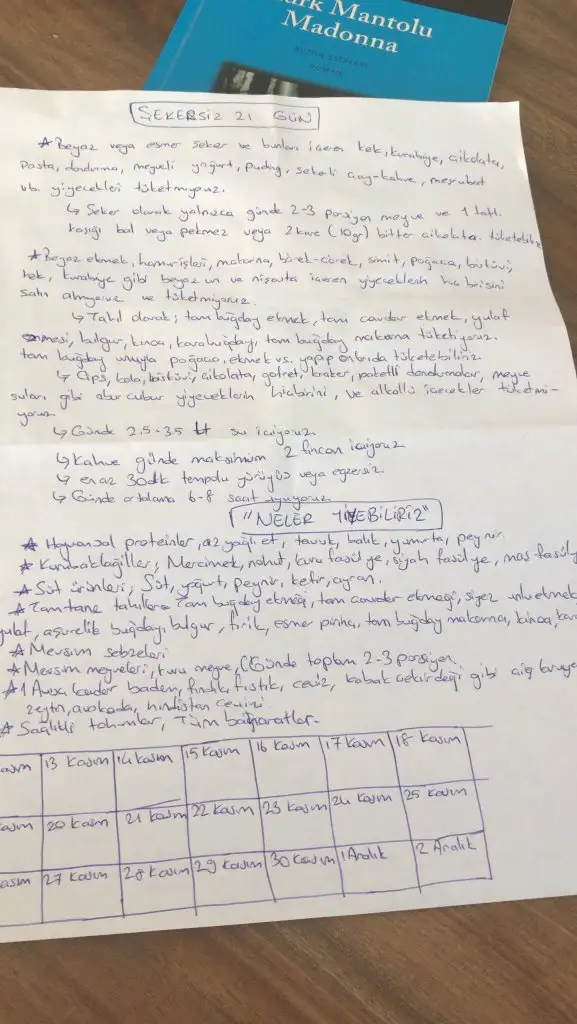 ürk Mantolu
Madonna
BÜTÜN ESERLERİ
ROMAN
ŞEKERSİZ 21 GÜN
★ Beyaz veya esmer şeker ve bunları içeren kek, kurabiye, çikolata,
pasta, dondurma, meyveli yoğurt, puding, şekerli çay-kahve, meşrubat
vb. yiyecekleri tüketmiyoruz.
↳ Şeker olarak yalnızca günde 2-3 porsiyon meyve ve 1 tatlı
kaşığı bal veya pekmez veya 2 kare (10gr) bitter çikolata tüketebiliriz
★ Beyaz ekmek, hamur-işleri, makarna, börek-çörek, simit, poğaça, bisküvi,
kek, kurabiye gibi beyaz un ve nişasta içeren yiyeceklerin hiç birisini
satın almıyoruz ve tüketmiyoruz.
↳ Tahıl olarak; tam buğday ekmek, tam çavdar ekmek, yulaf
ezmesi, bulgur, kinoa, karabuğday, tam buğday makarna tüketiyoruz.
tam buğday unuyla poğaça, ekmek vs. yapıp onlarıda tüketebiliriz.
↳ Cips, kola, bisküvi, çikolata, gofret, kraker, paketli dondurmalar, meyve
suları gibi abur cubur yiyeceklerin hiçbirini, ve alkollü içecekler tüketmi-
yoruz.
↳ Günde 2.5-3.5 lt su içiyoruz
↳ Kahve günde maksimum 2 fincan içiyoruz
↳ en az 30dk tempolu yürüyüş veya egzersiz.
↳ Günde ortalama 6-8 saat uyuyoruz
"NELER YİYEBİLİRİZ"
★ Hayvansal proteinler, az yağlı et, tavuk, balık, yumurta, peynir.
★ Kurubaklagiller; Mercimek, nohut, kuru fasülye, siyah fasülye, maş fasüly
★ Süt ürünleri; Süt, yoğurt, peynir, kefir, ayran.
★ Tam tane tahıllar; Tam buğday ekmeği, tam çavdar ekmeği, siyez unlu ekmek,
yulaf, aşurelik buğday, bulgur, firik, esmer pirinç, tam buğday makarna, kinoa, kara
★ Mevsim sebzeleri
★ Mevsim meyveleri, kuru meyve, (Günde toplam 2-3 porsiyon
★ 1 Avuç kadar badem, fındık, fıstık, ceviz, kabak çekirdeği gibi çiğ kuruye
zeytin, avokado, hindistan cevizi.
★ Sağlıklı tohumlar, Tüm baharatlar-
asım 13 Kasım 14 Kasım 15 Kasım 16 Kasım 17 Kasım 18 Kasım
asım 20 Kasım 21 Kasım 22 Kasım 23 Kasım 24 Kasım 25 Kasım
asım 27 Kasım 28 Kasım 29 Kasım 30 Kasım 1 Aralık 2 Aralık